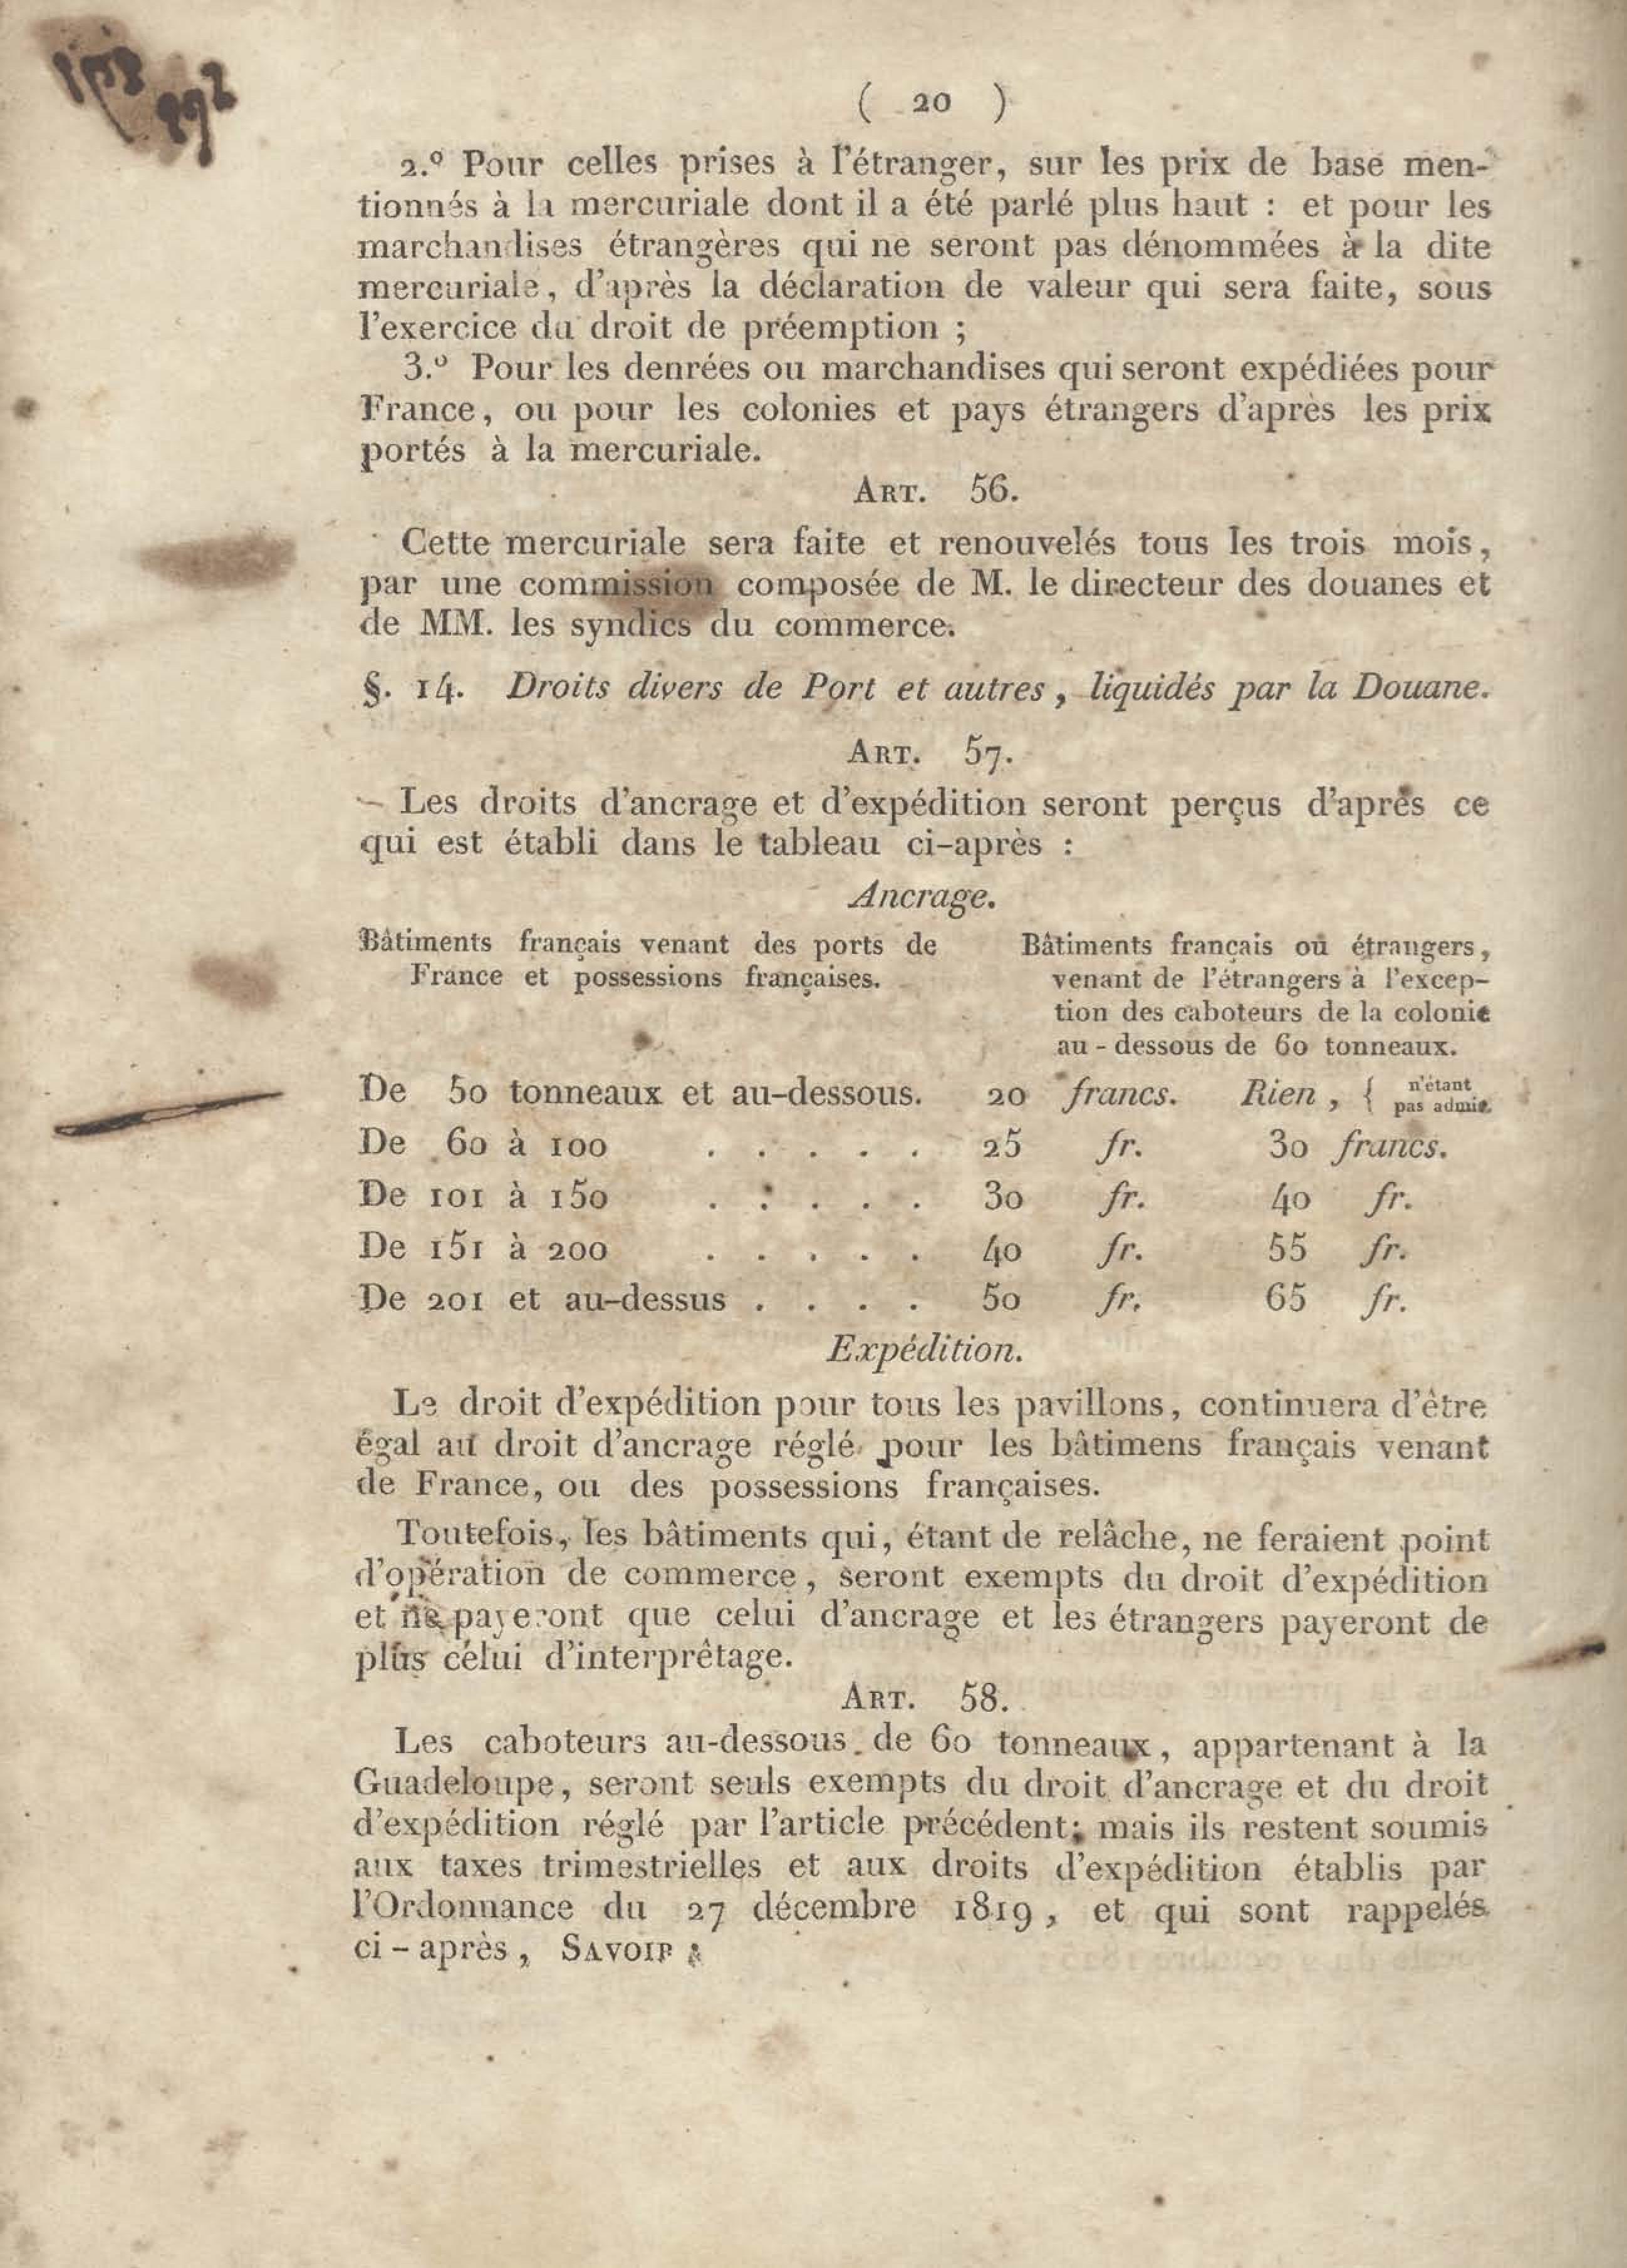 ( 20 )
2.º Pour celles prises à l'étranger, sur les prix de base men-
tionnés à la mercuriale dont il a été parlé plus haut : et pour les
marchandises étrangères qui ne seront pas dénommées à la dite
mercuriale, d'après la déclaration de valeur qui sera faite, sous
l'exercice du droit de préemption ;
3.º Pour les denrées ou marchandises qui seront expédiées pour
France, ou pour les colonies et pays étrangers d'après les prix
portés à la mercuriale.
ART. 56.
Cette mercuriale sera faite et renouvelés tous les trois mois,
par une commission composée de M. le directeur des douanes et
de MM. les syndics du commerce.
§. 14. Droits divers de Port et autres, liquidés par la Douane.
ART. 57.
Les droits d'ancrage et d'expédition seront perçus d'après ce
qui est établi dans le tableau ci-après :
Ancrage.
Bâtiments français venant des ports de
France et possessions françaises.
Bâtiments français ou étrangers,
venant de l'étrangers à l'excep-
tion des caboteurs de la colonie
au-dessous de 60 tonneaux.
De 50 tonneaux et au-dessous. 20 francs. Rien, { n'étant pas admis.
De 60 à 100 . . . . . 25 fr. 30 francs.
De 101 à 150 . . . . . 30 fr. 40 fr.
De 151 à 200 . . . . . 40 fr. 55 fr.
De 201 et au-dessus . . . . 50 fr. 65 fr.
Expédition.
Le droit d'expédition pour tous les pavillons, continuera d'être
égal au droit d'ancrage réglé pour les bâtimens français venant
de France, ou des possessions françaises.
Toutefois, les bâtiments qui, étant de relâche, ne feraient point
d'opération de commerce, seront exempts du droit d'expédition
et ne payeront que celui d'ancrage et les étrangers payeront de
plus celui d'interprêtage.
ART. 58.
Les caboteurs au-dessous de 60 tonneaux, appartenant à la
Guadeloupe, seront seuls exempts du droit d'ancrage et du droit
d'expédition réglé par l'article précédent; mais ils restent soumis
aux taxes trimestrielles et aux droits d'expédition établis par
l'Ordonnance du 27 décembre 1819, et qui sont rappelés
ci-après, SAVOIR :